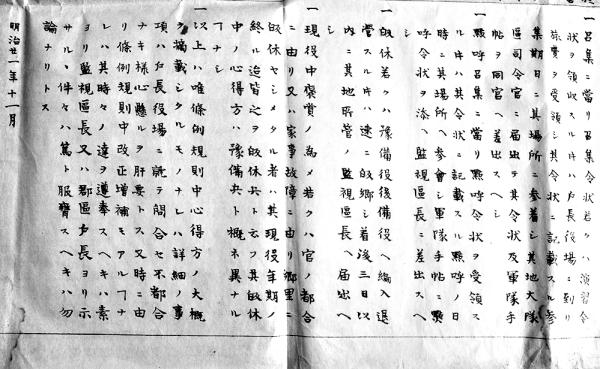 一召集ニ當リ召集令狀若クハ演習令
狀ヲ領收スル𪜈ハ戸長役場ニ到リ
旅費ヲ受領シ其令狀ニ記載スル参
集期日ニ其場所ニ参着シ其地大隊
區司令官ニ届出テ其令狀及軍隊手
帖ヲ同官ヘ差出スヘシ
一點呼召集ニ當リ點呼令狀ヲ受領ス
ル𪜈ハ其令狀ニ記載スル點呼ノ日
時ニ其場所ヘ参會シ軍隊手帖ニ點
呼令狀ヲ添ヘ監視區長ニ差出スヘ
シ
一皈休若クハ豫備役後備役ヘ編入退
營スル𪜈ハ速ニ皈郷シ着後三日以
内ニ其地所管ノ監視區長ヘ届出ヘ
シ
一現役中褒賞ノ為メ若クハ官ノ都合
ニ由リ又ハ家事故障ニ由リ郷里ニ
皈休セシメタル者ハ其現役年期ノ
終ル迨皆之ヲ皈休兵ト云フ其皈休
中ノ心得方ハ豫備兵ト概ネ異ナル
ヿナシ
一以上ハ唯條例規則中心得方ノ大概
ヲ摘載シタルモノナレハ詳細ノ事
項ハ戸長役場ニ就テ問合セ不都合
ナキ様心懸ルヲ肝要トス又時ニ由
リ條例規則中改正増補モアルヿナ
レハ其時々ノ達ヲ遵奉スヘキハ素
ヨリ監視區長又ハ郡區戸長ヨリ示
サルヽ件々ハ篤ト服膺スヘキハ勿
論ナリトス
明治廿一年十一月